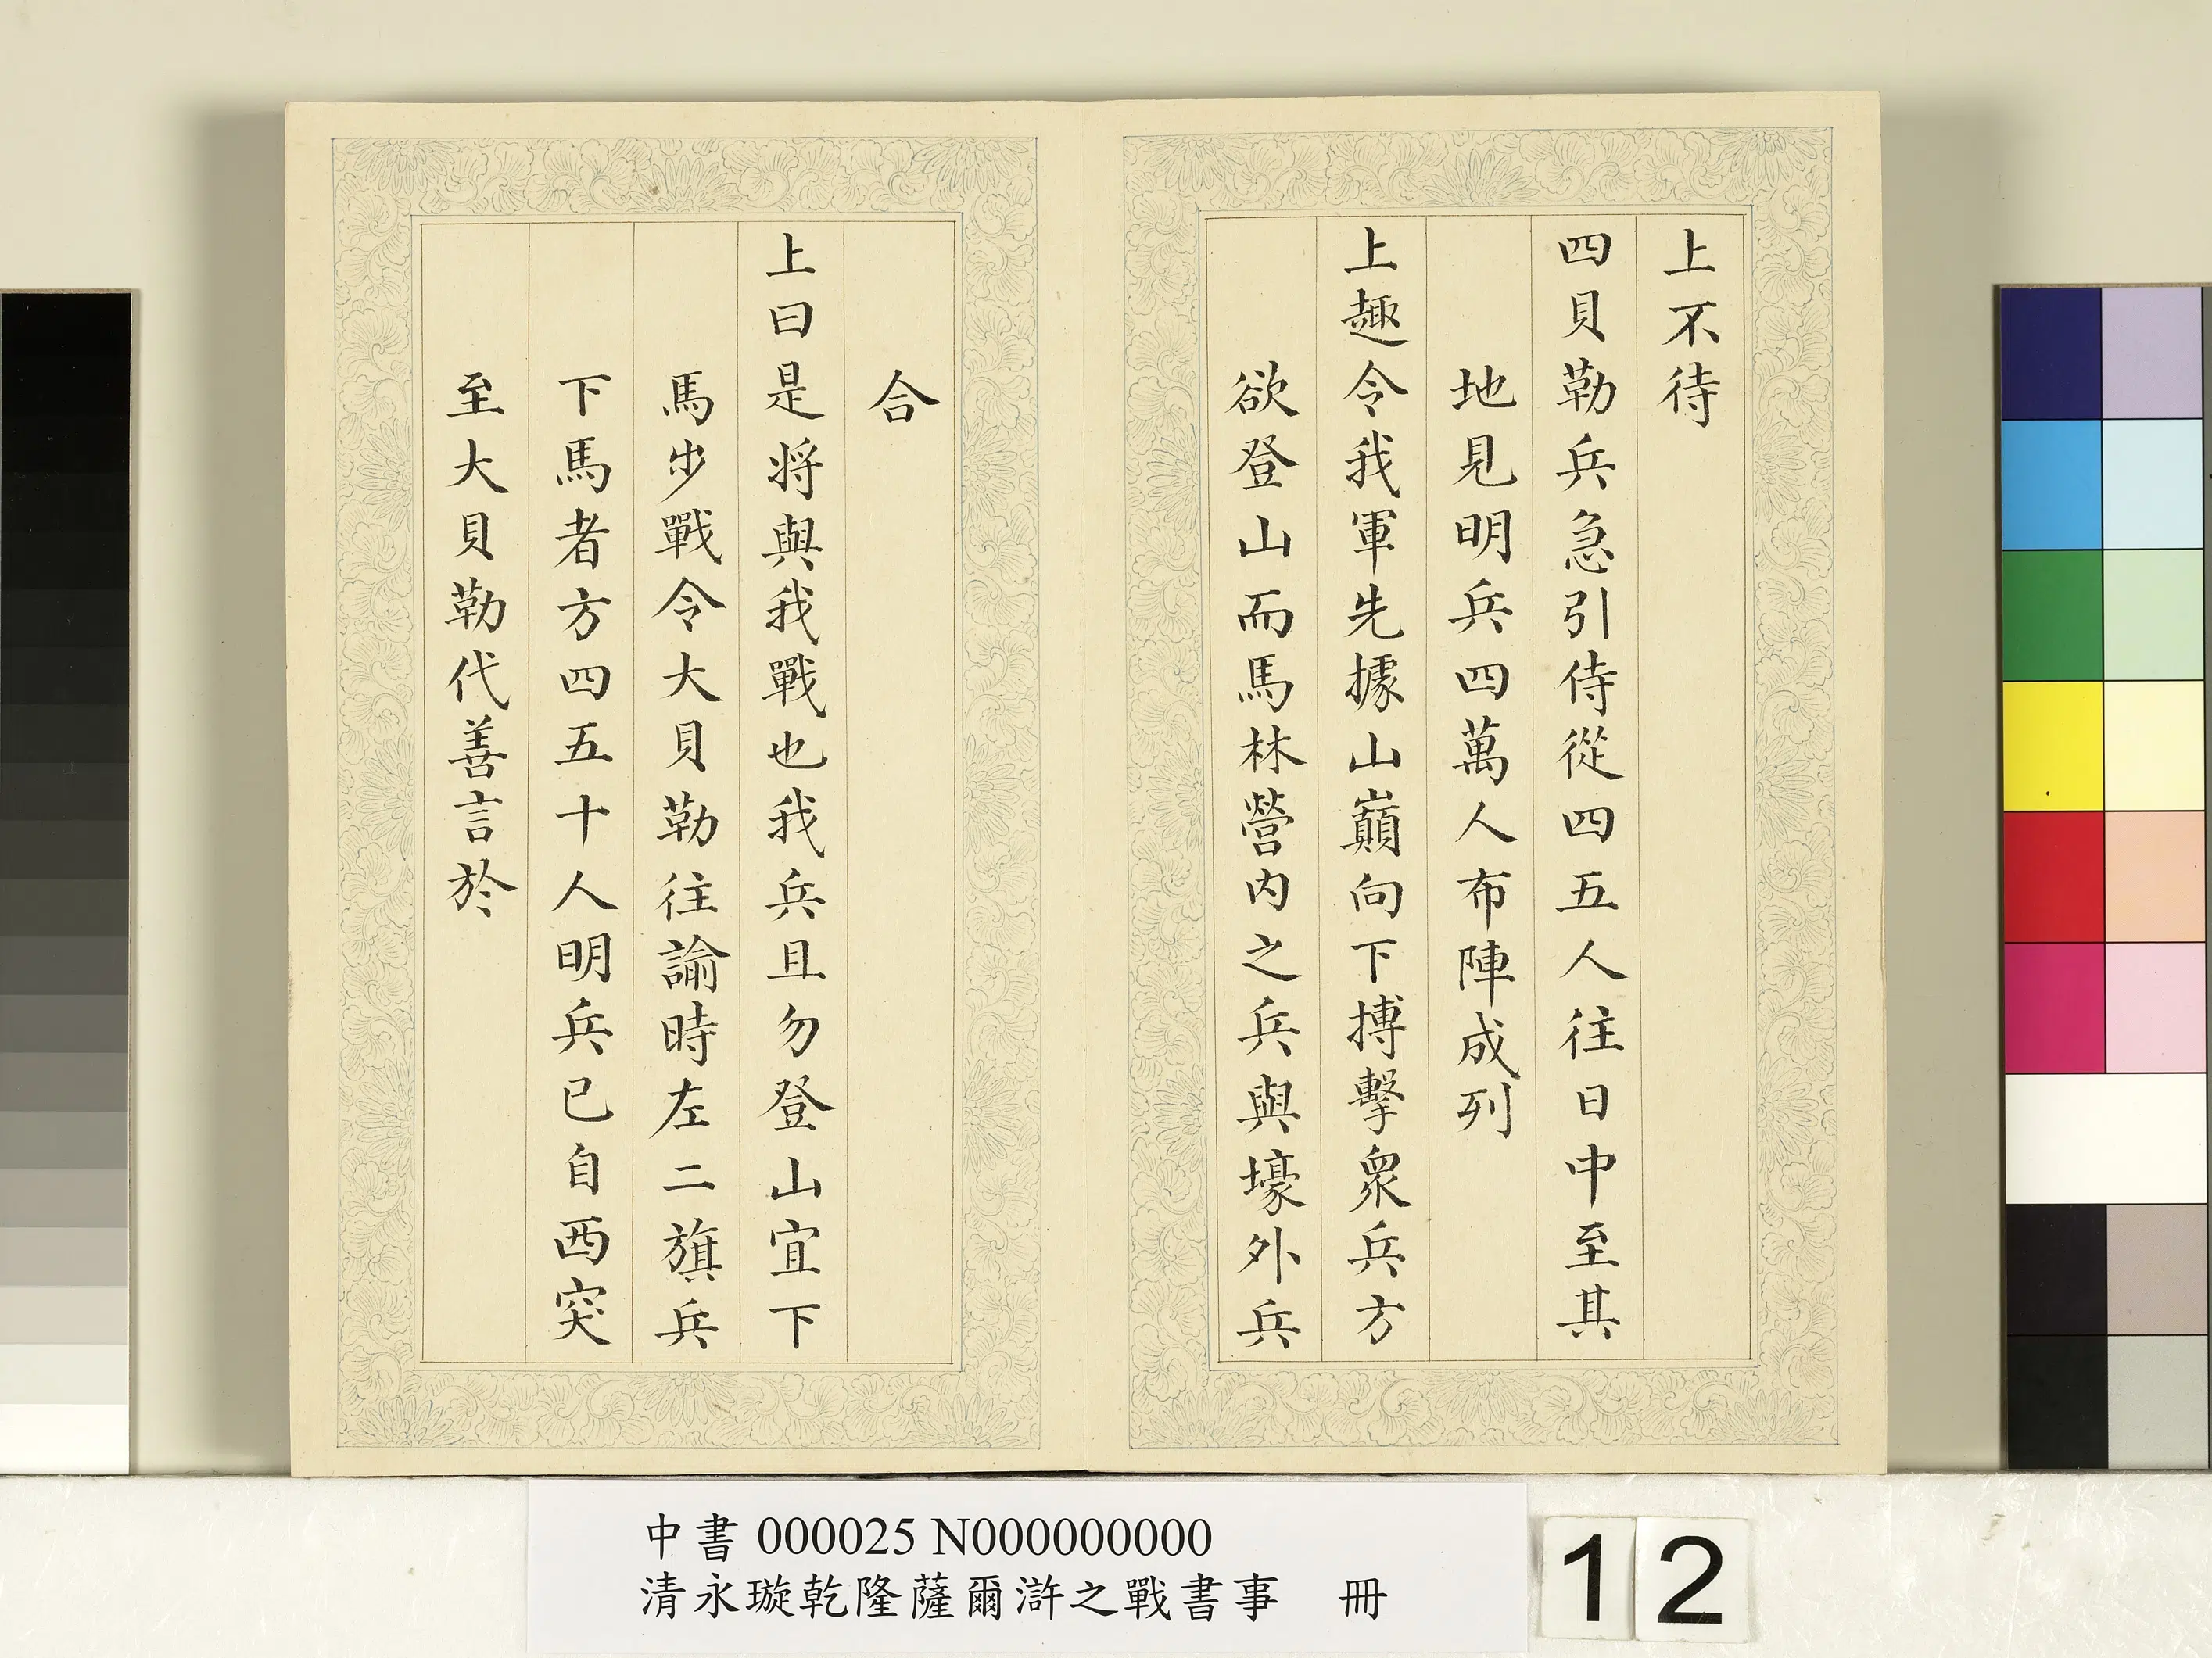 上不待
四貝勒兵急引侍從四五人往日中至其
地見明兵四萬人布陣成列
上趣令我軍先據山巔向下搏擊眾兵方
欲登山而馬林營内之兵與壕外兵
合
上曰是將與我戰也我兵且勿登山宜下
馬步戰令大貝勒往諭時左二旗兵
下馬者方四五十人明兵已自西突
至大貝勒代善言於
中書 000025 N000000000
清永璇乾隆薩爾滸之戰書事　冊
12